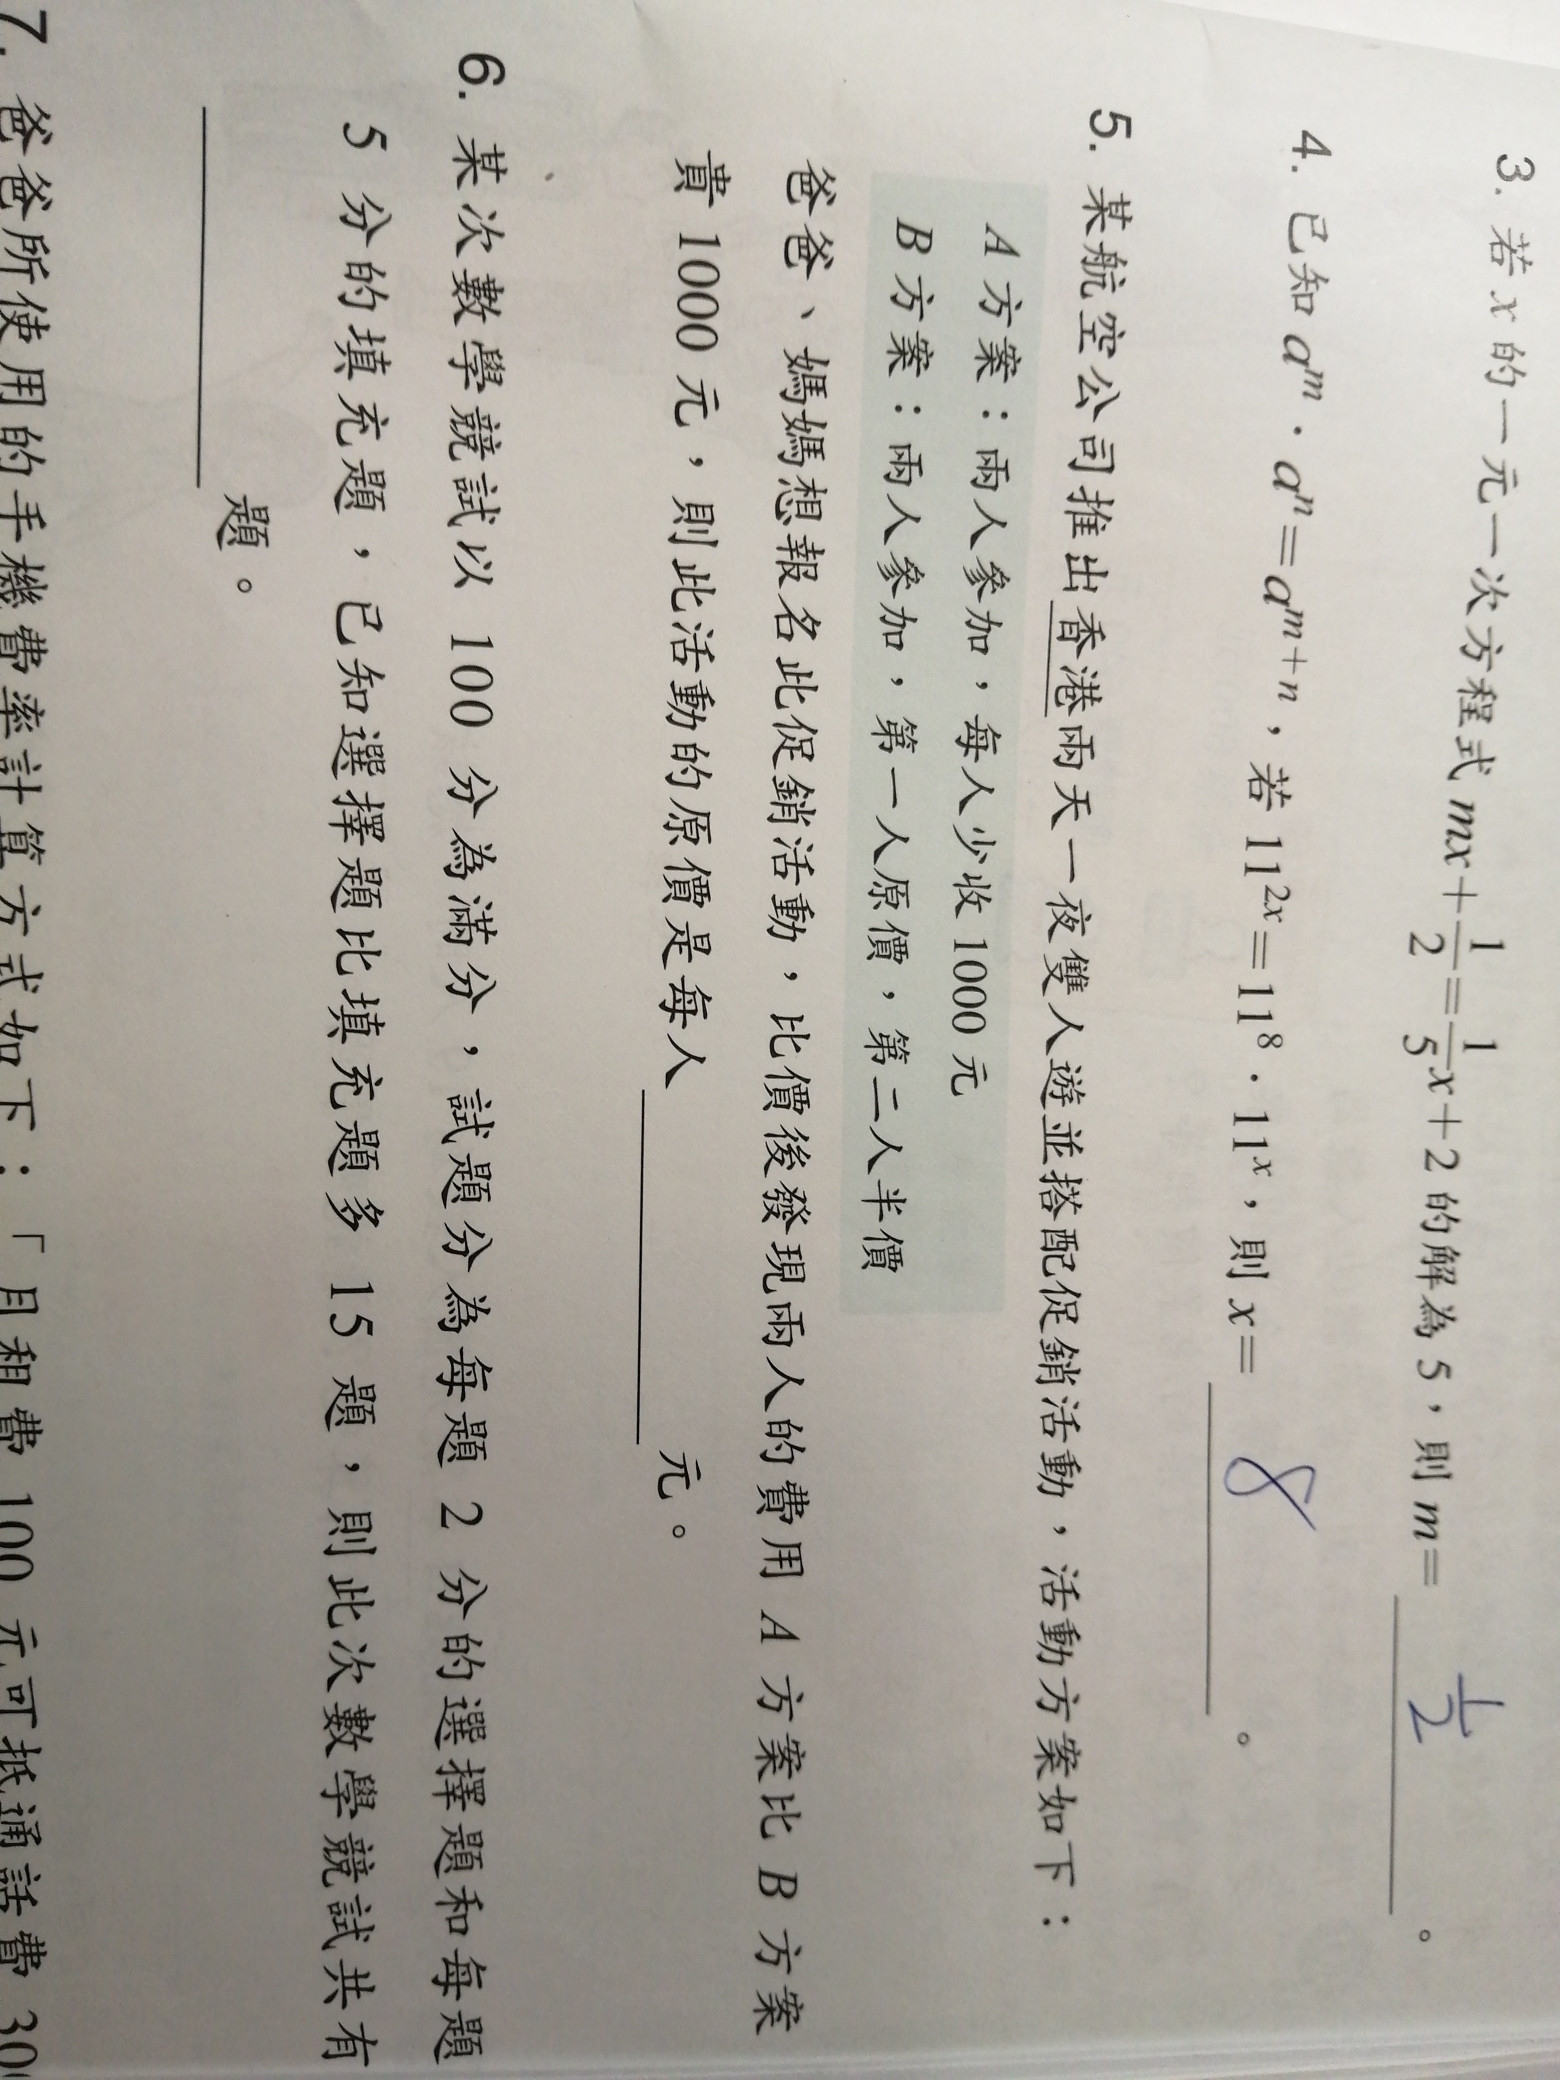 3. 若 x 的一元一次方程式 mx+1/2=1/5x+2 的解為 5，則 m= 1/2 。
4. 已知 aᵐ · aⁿ=aᵐ⁺ⁿ，若 11²ˣ=11⁸ · 11ˣ，則 x= 8 。
5. 某航空公司推出香港兩天一夜雙人遊並搭配促銷活動，活動方案如下：
A 方案：兩人參加，每人少收 1000 元
B 方案：兩人參加，第一人原價，第二人半價
爸爸、媽媽想報名此促銷活動，比價後發現兩人的費用 A 方案比 B 方案
貴 1000 元，則此活動的原價是每人 ______ 元。
6. 某次數學競試以 100 分為滿分，試題分為每題 2 分的選擇題和每題
5 分的填充題，已知選擇題比填充題多 15 題，則此次數學競試共有
______ 題。
7. 爸爸所使用的手機費率計算方式如下：「月租費 100 元可抵通話費 30